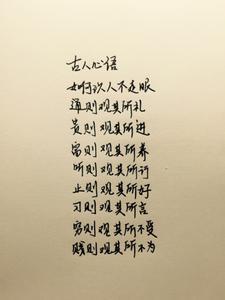 古人心语
如何识人不走眼
通则观其所礼
贵则观其所进
富则观其所养
听则观其所行
止则观其所好
习则观其所言
穷则观其所不受
贱则观其所不为